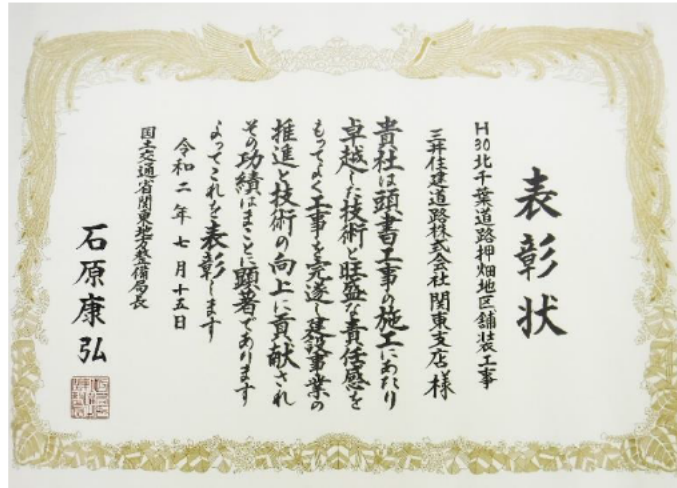 表彰状
H30北千葉道路押畑地区舗装工事
三井住建道路株式会社関東支店様
貴社は頭書工事の施工にあたり
卓越した技術と旺盛な責任感を
もってよく工事を完遂し建設事業の
推進と技術の向上に貢献され
その功績はまことに顕著であります
よってこれを表彰します
令和二年七月十五日
国土交通省関東地方整備局長
石原康弘